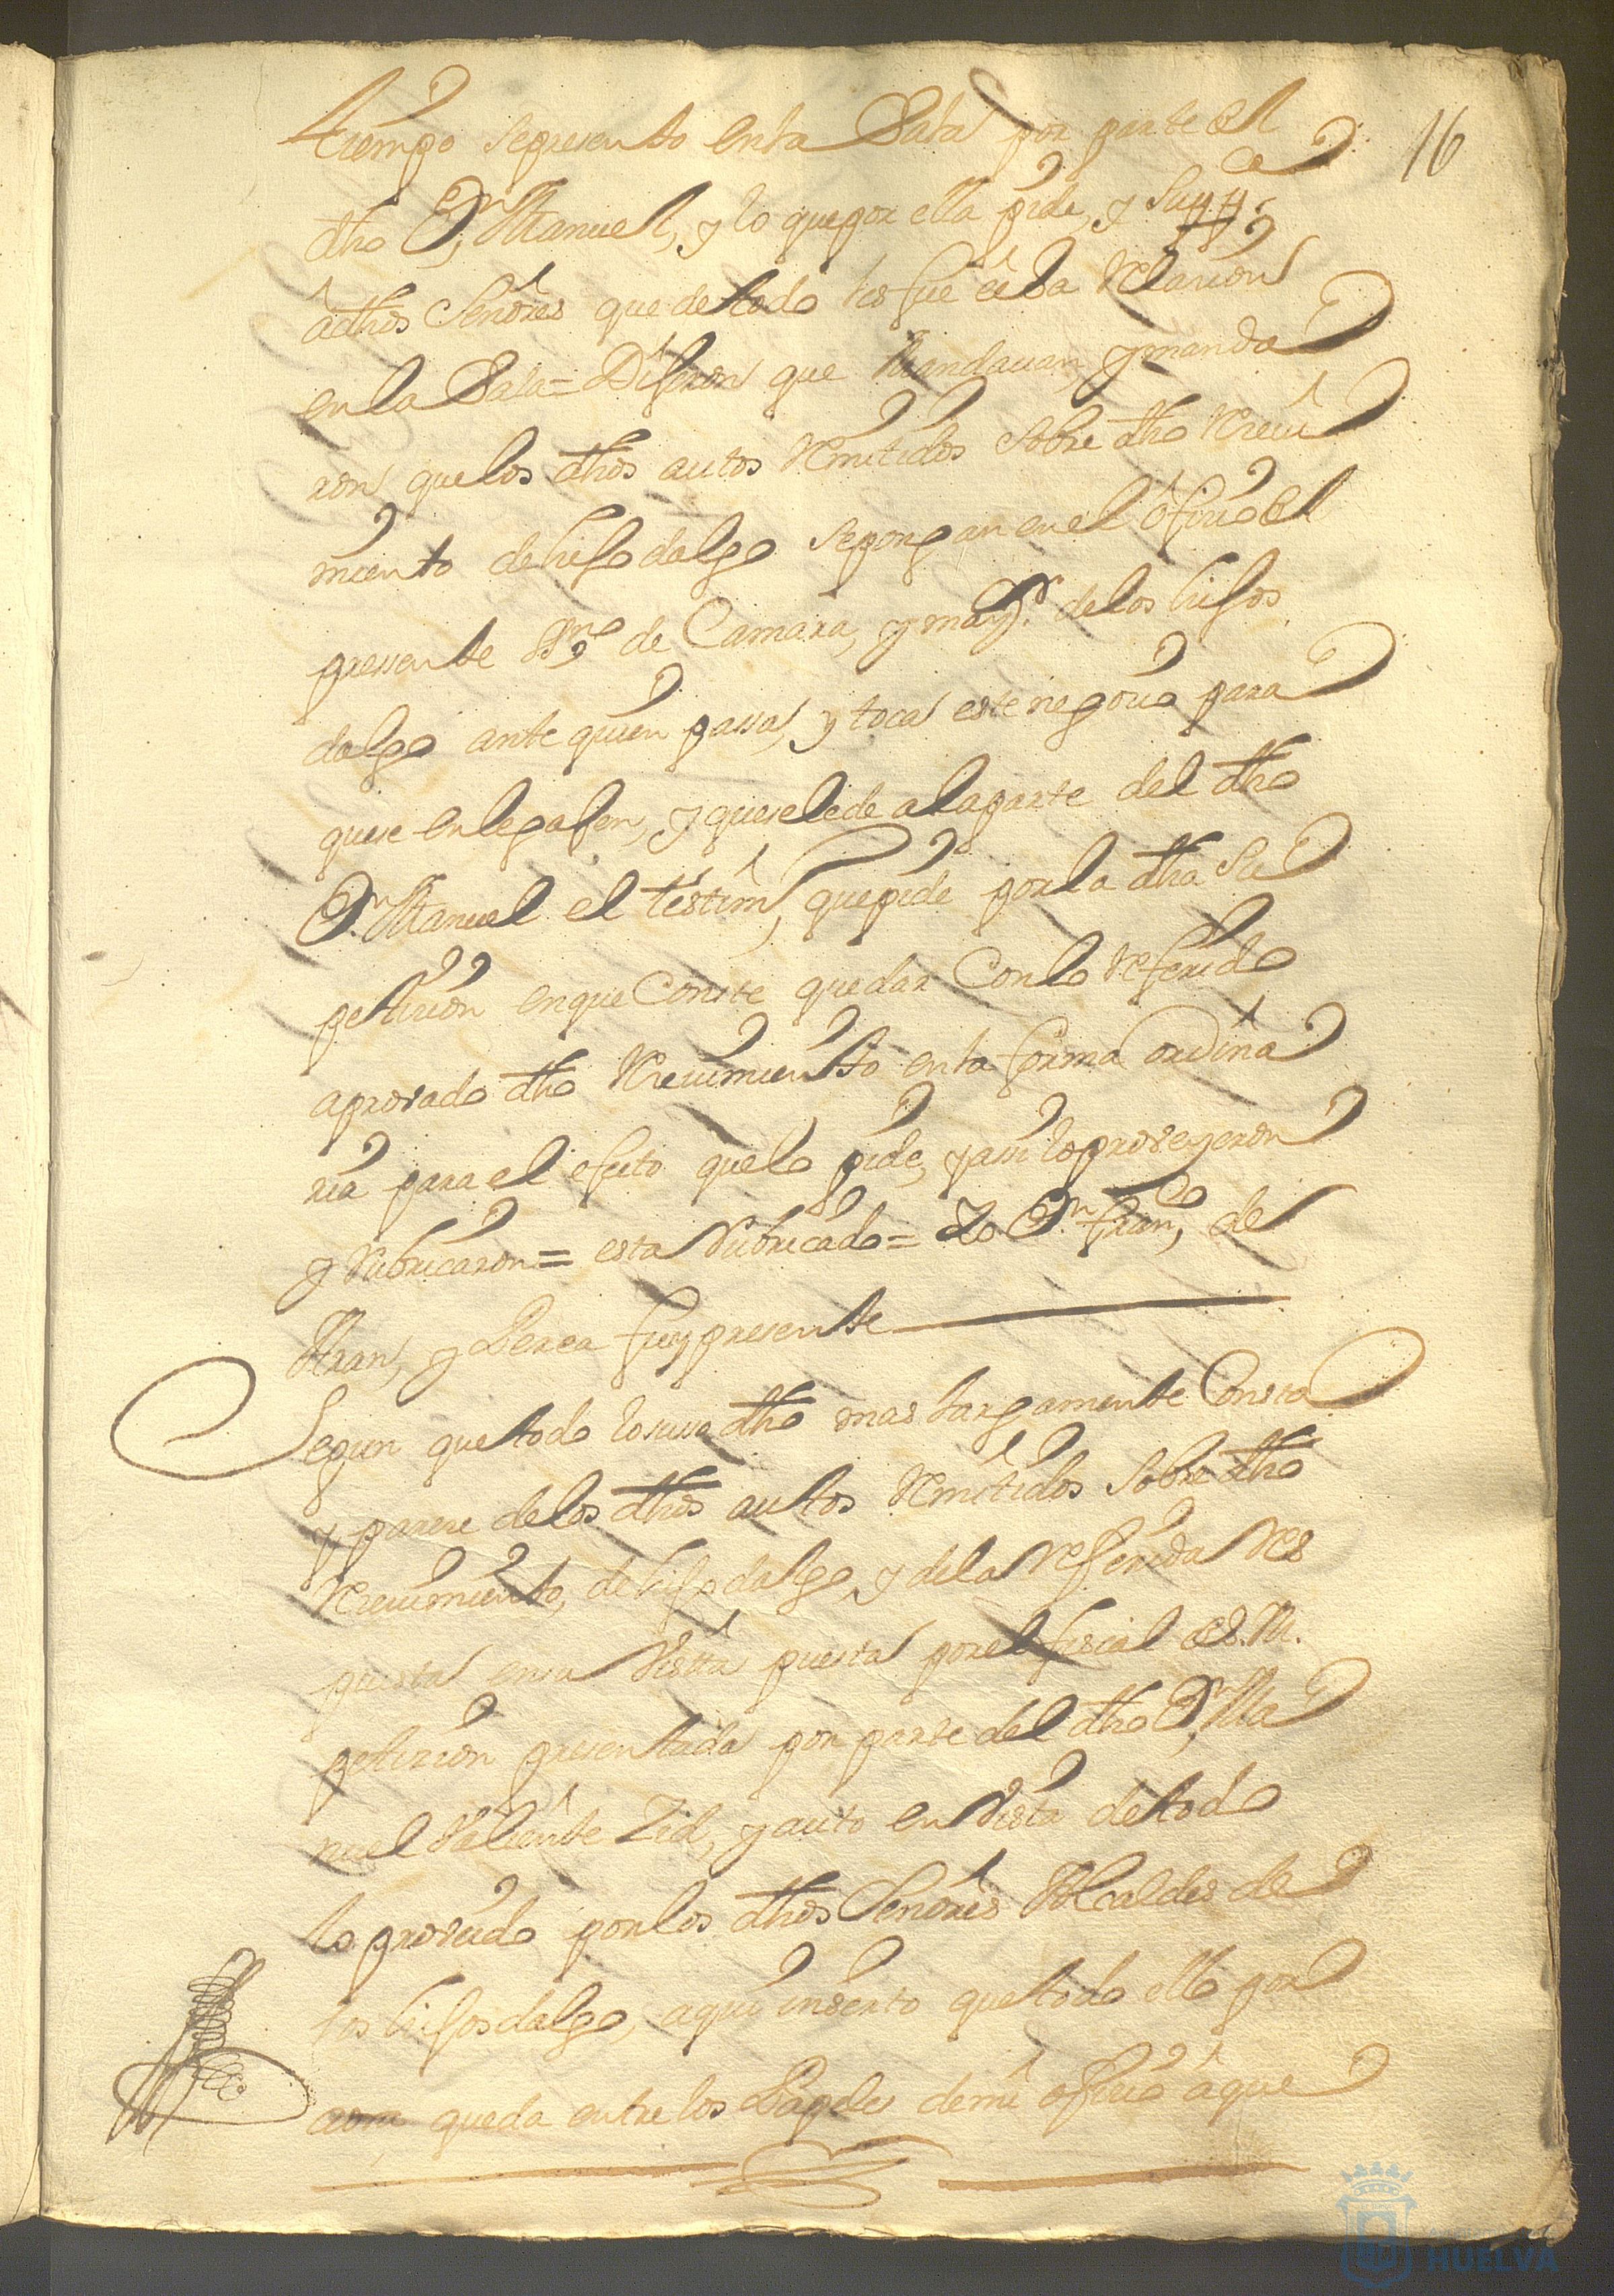 16
tiempo sepresento enla Sala por parte del
dho Dn, Manuel, y lo quepor ella pide, y Supp.ca
âdhos Señores que detodo les fue echa Relacion
en la Sala = Dijeron que Mandauan, ymanda
ron, quelos dhos autos Remitidos Sobre dho Reciui
miento dehijo dalgo sepongan en el ôficio del
pressente Sno de Camara, y mayr. delos hijos
dalgo ante quien passa, y toca este negocio para
quese enlegajen, y queselede alaparte del dho
Dn. Manuel el testim, quepide por la dha Su
peticion enque Conste quedar Con lo Referido
aprovado dho Reciuimiento en la forma ordina
ria para el efecto quelo pide, yassi loproveyeron
y Rubricaron = esta Rubricado = Yo Dn Franco, de
Aran, y Perea fuy presente
Segun quetodo losusso dho mas largamente Consta
y parece delos dhos autos Remitidos Sobre dho
Reciuimiento, de hijo dalgo, y dela Referida Res
puesta ensu Vista puesta por el fiscal de S. M.
peticion presentada por parte del dho Dn, Ma
nuel Valiente Zid, y auto en Vista de todo
lo proveido por los dhos Señores Alcaldes de
los hijosdalgo, aqui inserto quetodo ello por
aora queda entre los Papeles demi ofiçio âque
HUELVA